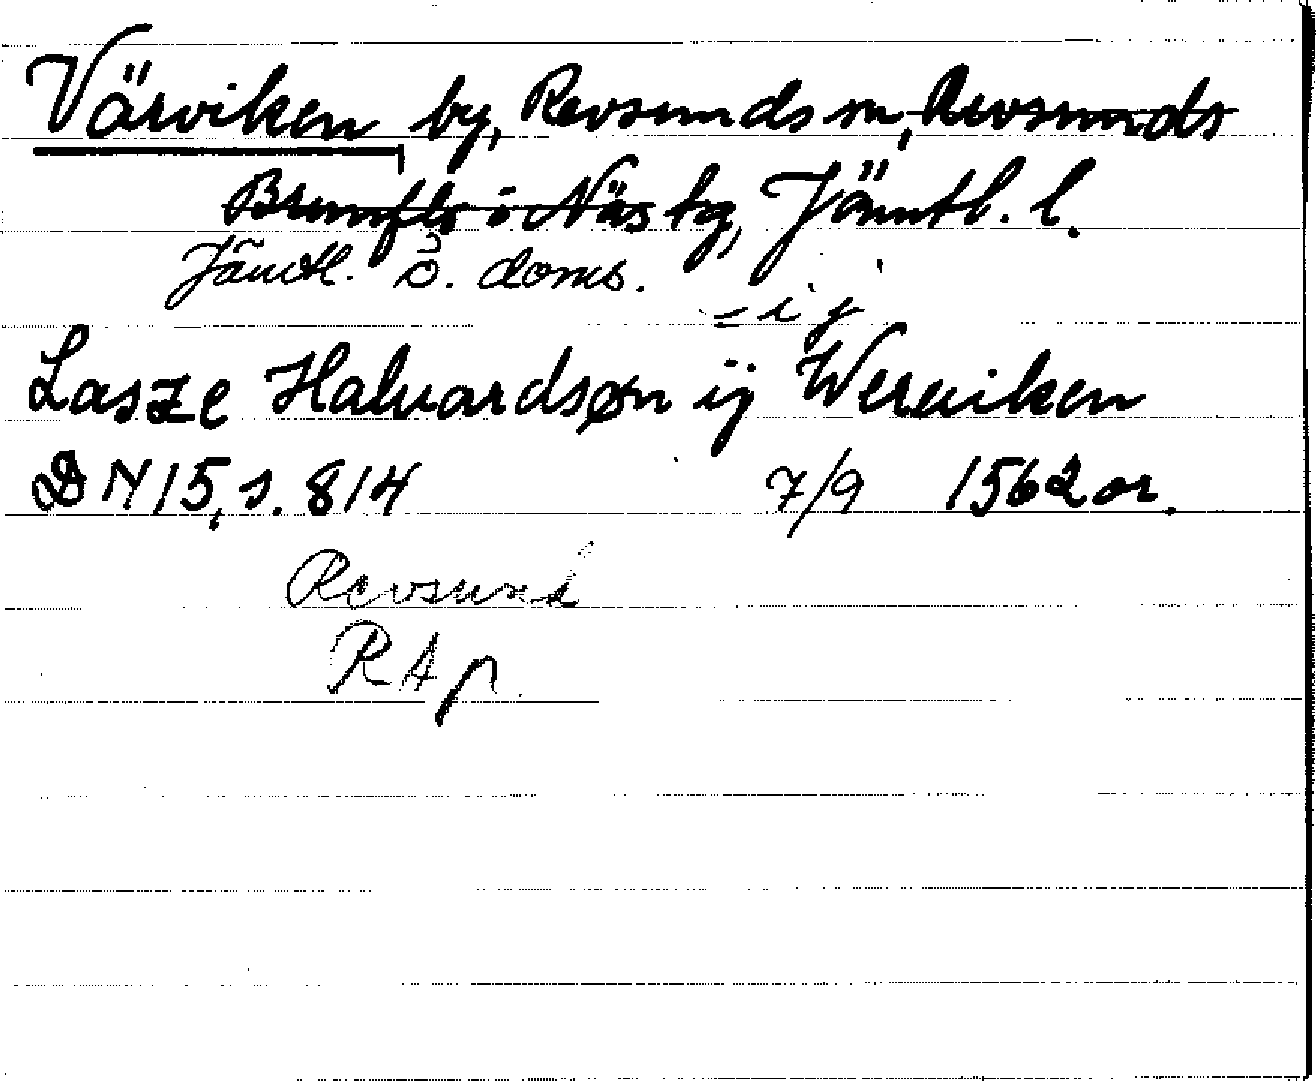 Värviken by, Revsunds sn, Revsunds
Brunflo o Näs tg, Jämtl. l.
Jämtl. Ö. doms.
= i j
Lasze Haluardsøn ij Weruiken
DN 15, s. 814 7/9 1562 or.
Revsund
RAp